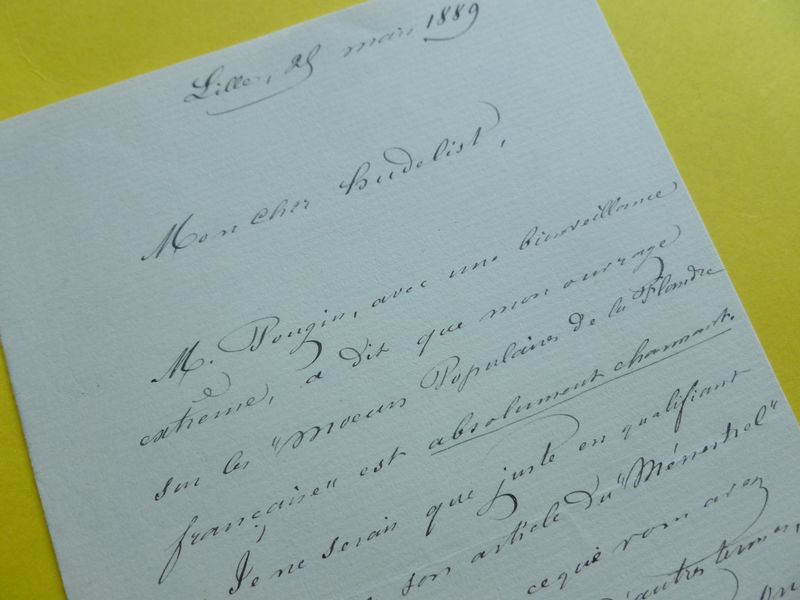 Lille, 25 mars 1889
Mon cher Hudelist,
M. Pougin, avec une bienveillance
extrême, a dit que mon ouvrage
sur les "Moeurs Populaires de la Flandre
française" est absolument charmant.
Je ne serais que juste en qualifiant
son article du "Ménestrel"
ce que vous avez
d'autres termes,